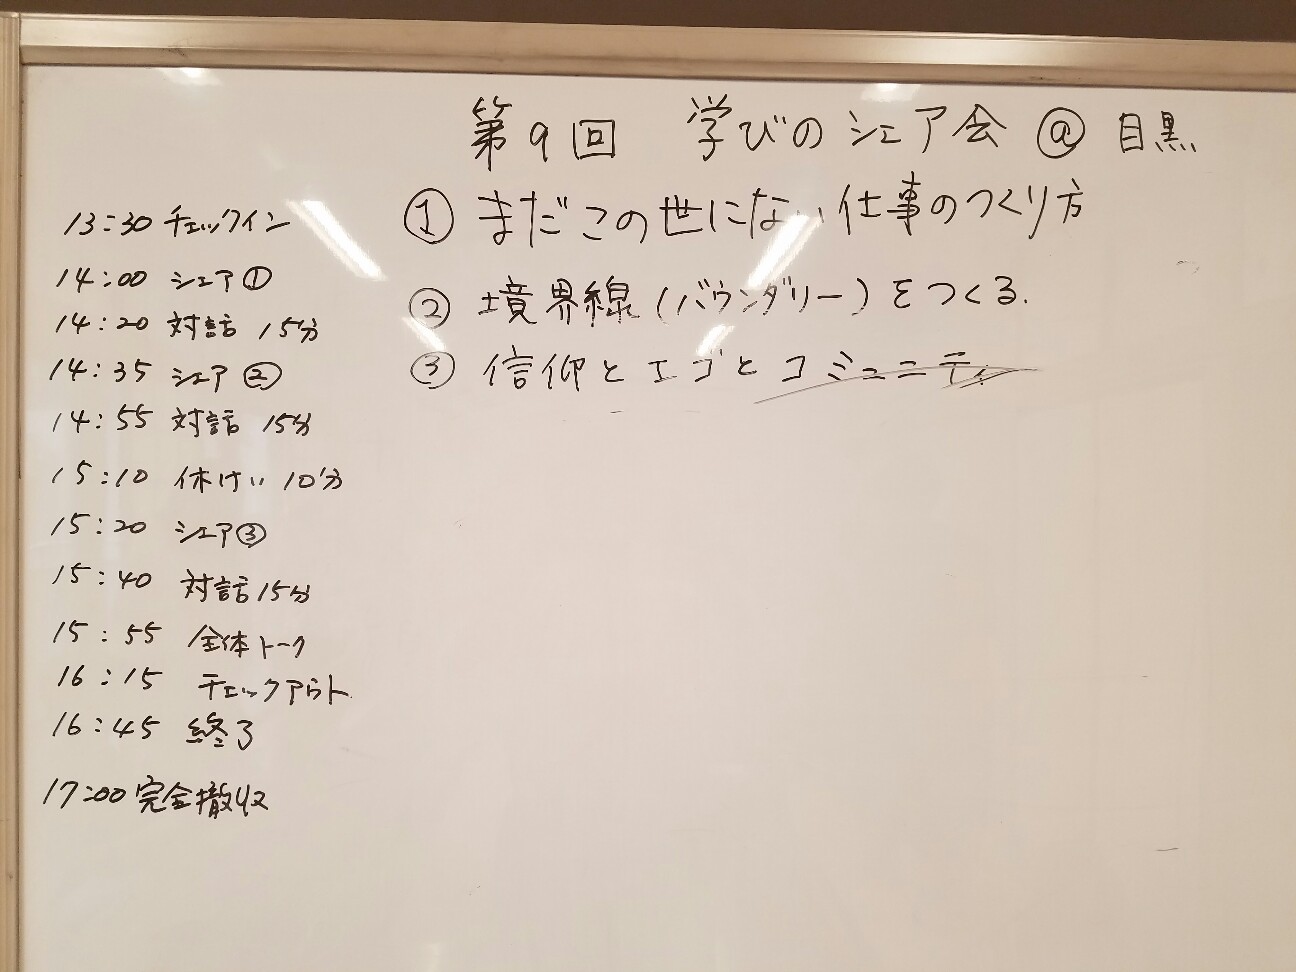 第9回 学びのシェア会 @ 目黒
① まだこの世にない仕事のつくり方
② 境界線(バウンダリー)をつくる.
③ 信仰とエゴとコミュニティ
13:30 チェックイン
14:00 シェア①
14:20 対話 15分
14:35 シェア②
14:55 対話 15分
15:10 休けい 10分
15:20 シェア③
15:40 対話 15分
15:55 全体トーク
16:15 チェックアウト
16:45 終了
17:00 完全撤収